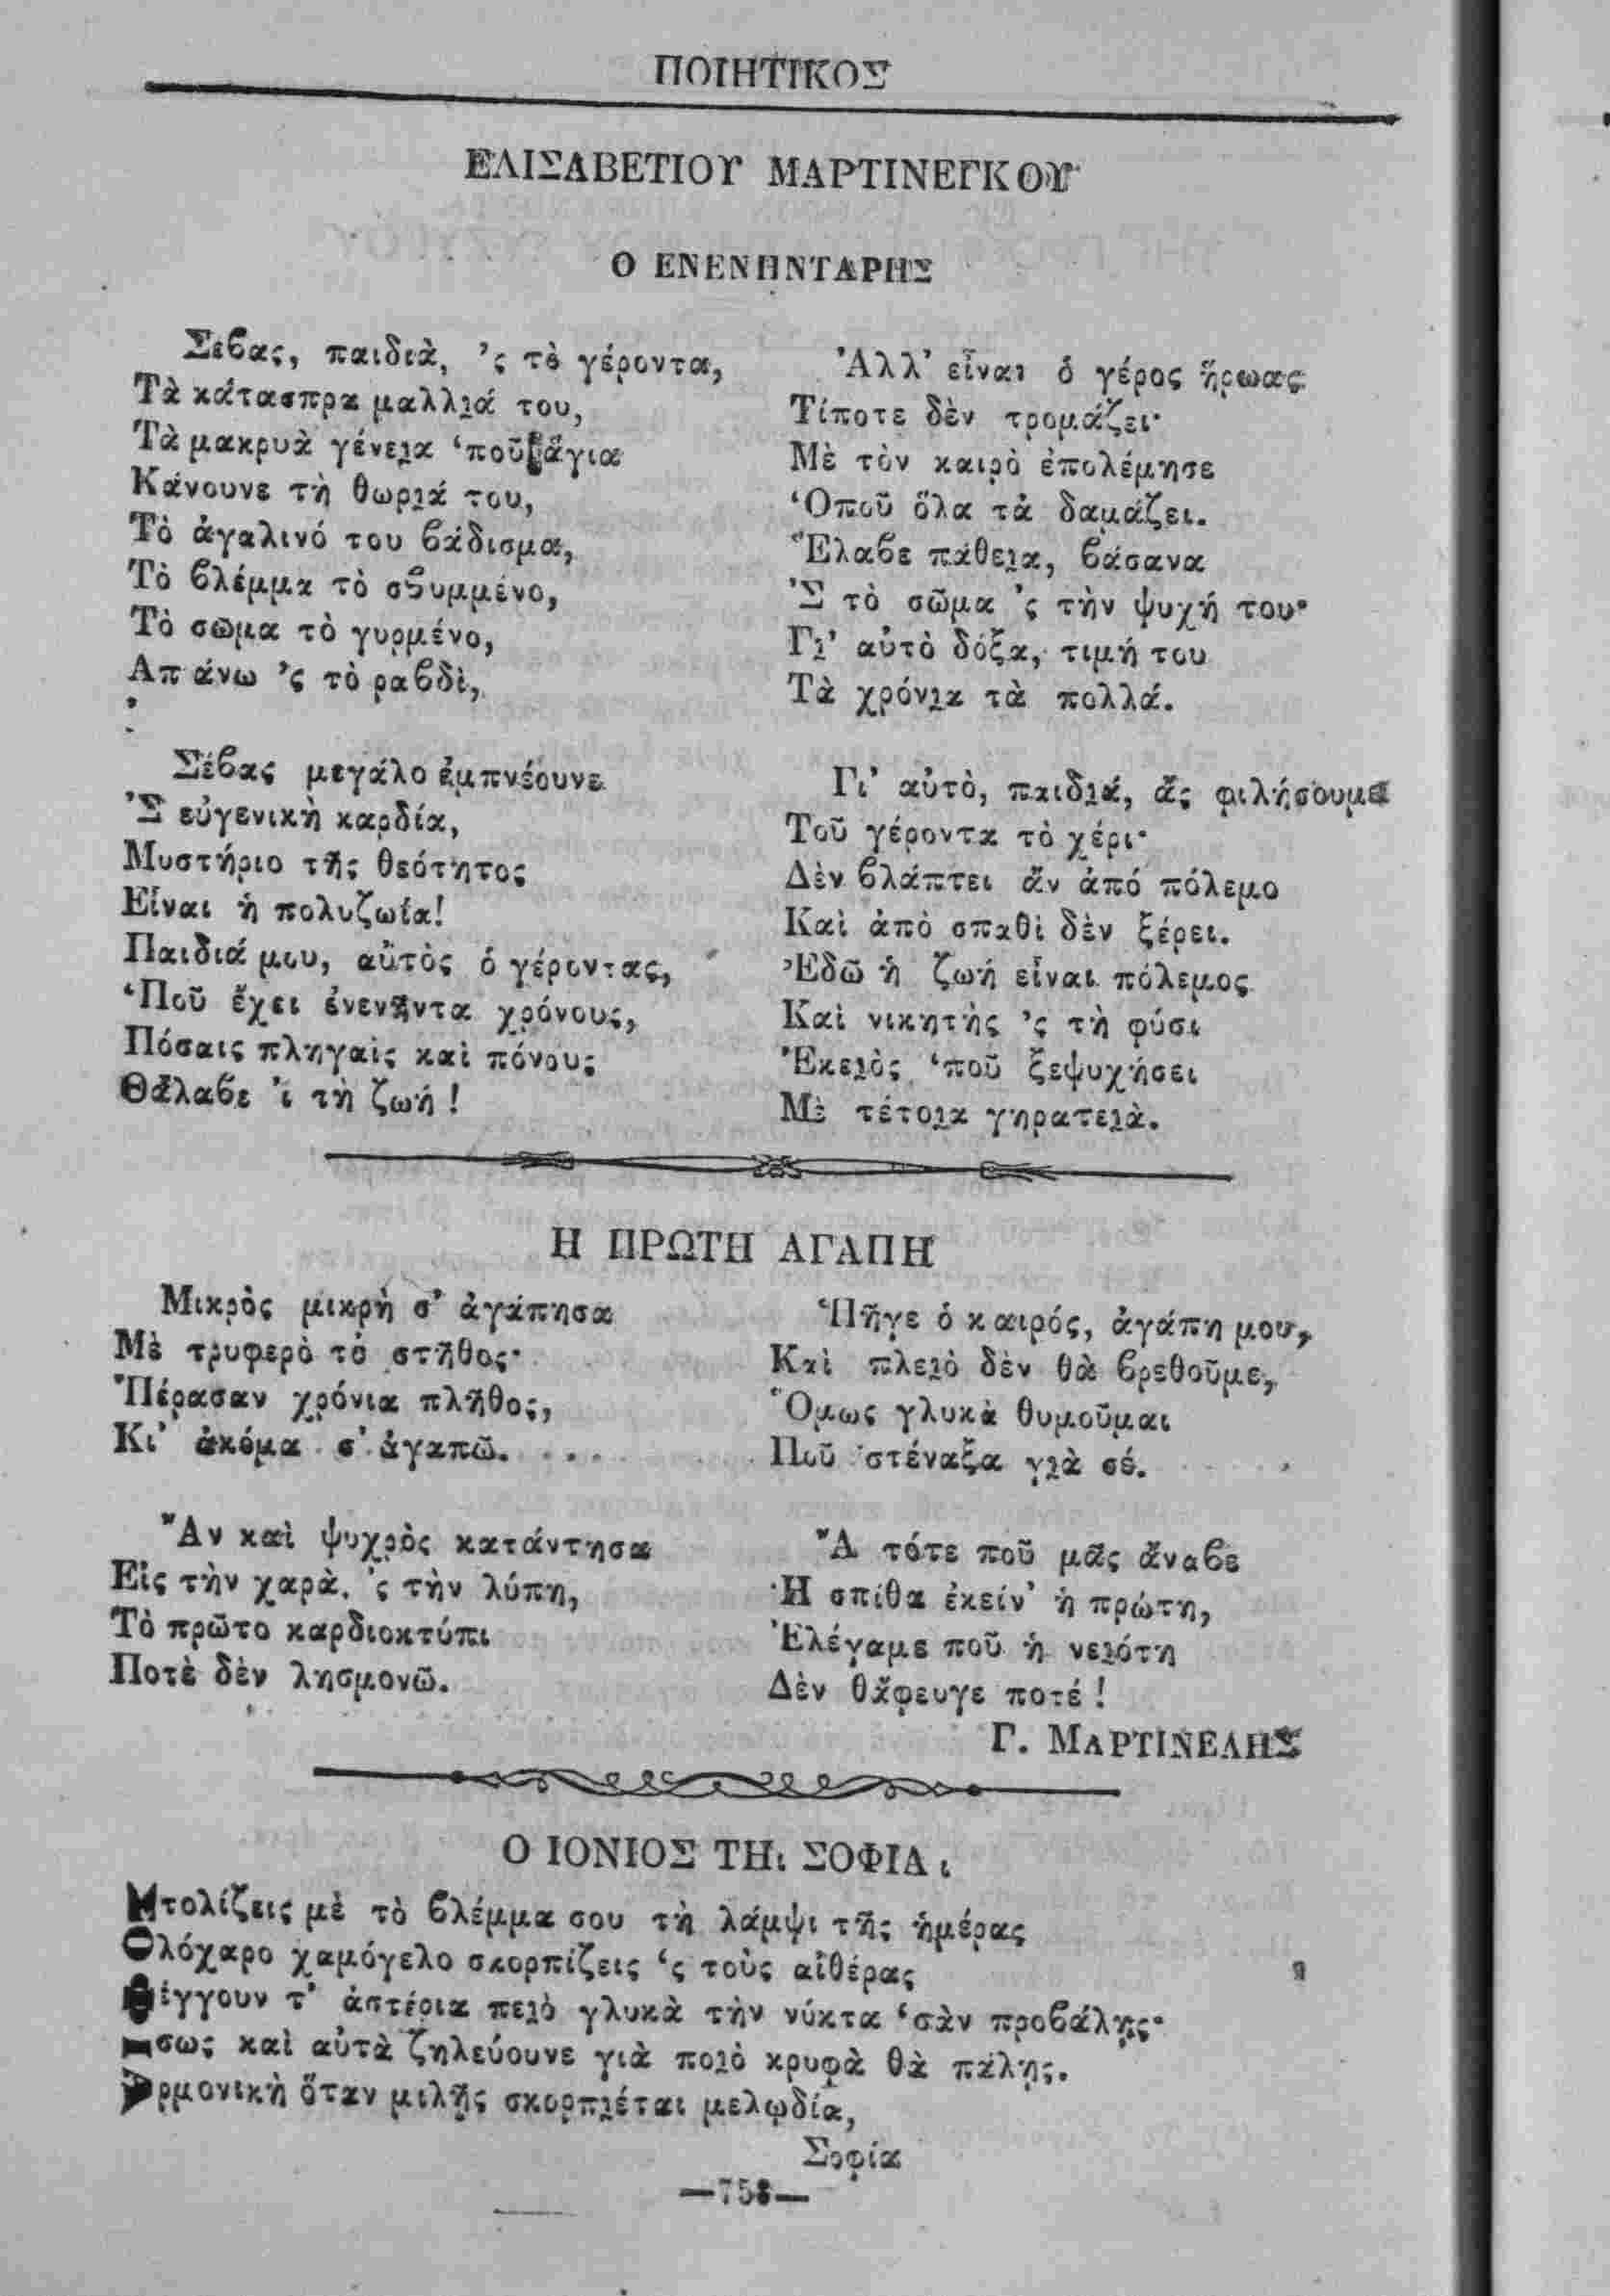 ΠΟΙΗΤΙΚΟΣ
ΕΛΙΣΑΒΕΤΙΟΥ ΜΑΡΤΙΝΕΓΚΟΥ
Ο ΕΝΕΝΗΝΤΑΡΗΣ
Σέβας, παιδιὰ, ’ς τὸ γέροντα,
Τὰ κάτασπρα μαλλιά του,
Τὰ μακρυὰ γένεια ‘ποῦ ἅγια
Κάνουνε τὴ θωριά του,
Τὸ ἀγαλινό του βάδισμα,
Τὸ βλέμμα τὸ σβυμμένο,
Τὸ σῶμα τὸ γυρμένο,
Απάνω ’ς τὸ ραβδὶ,
Σέβας μεγάλο ἐμπνέουνε
Ἐ εὐγενικὴ καρδία,
Μυστήριο τῆς θεότητος
Εἶναι ἡ πολυζωΐα!
Παιδιά μου, αὐτὸς ὁ γέροντας,
‘Ποῦ ἔχει ἐνενῆντα χρόνους,
Πόσαις πληγαὶς καὶ πόνους
Θἄλαβε ’ς τὴ ζωή !
Ἀλλ’ εἶναι ὁ γέρος ἥρωας
Τίποτε δὲν τρομάζει·
Μὲ τὸν καιρὸ ἐπολέμησε
Ὁποῦ ὅλα τὰ δαμάζει.
Ἔλαβε πάθεια, βάσανα
’Σ τὸ σῶμα ’ς τὴν ψυχή του·
Γι’ αὐτὸ δόξα, τιμή του
Τὰ χρόνια τὰ πολλά.
Γι’ αὐτὸ, παιδιά, ἂς φιλήσουμε
Τοῦ γέροντα τὸ χέρι·
Δὲν βλάπτει ἂν ἀπό πόλεμο
Καὶ ἀπὸ σπαθὶ δὲν ξέρει.
Ἐδῶ ἡ ζωή εἶναι πόλεμος
Καὶ νικητὴς ’ς τὴ φύσι
Ἐκειὸς ‘ποῦ ξεψυχήσει
Μὲ τέτοια γηρατειὰ.
Η ΠΡΩΤΗ ΑΓΑΠΗ
Μικρὸς μικρὴ σ’ ἀγάπησα
Μὲ τρυφερὸ τὸ στῆθος·
Ἐπέρασαν χρόνια πλῆθος,
Κι’ ἀκόμα σ’ ἀγαπῶ. . . .
Ἂν καὶ ψυχρὸς κατάντησα
Εἰς τὴν χαρὰ, ’ς τὴν λύπη,
Τὸ πρῶτο καρδιοκτύπι
Ποτὲ δὲν λησμονῶ.
Πῆγε ὁ καιρός, ἀγάπη μου,
Καὶ πλειὸ δὲν θὰ βρεθοῦμε,
Ὅμως γλυκὰ θυμοῦμαι
Ποῦ ’στέναξα γιὰ σέ.
Ἂ τότε ποῦ μᾶς ἄναβε
Ἡ σπίθα ἐκείν’ ἡ πρώτη,
Ἐλέγαμε ποῦ ἡ νειότη
Δὲν θἄφευγε ποτέ !
Γ. ΜΑΡΤΙΝΕΛΗΣ
Ο ΙΟΝΙΟΣ ΤΗι ΣΟΦΙΑι
Στολίζεις μὲ τὸ βλέμμα σου τὴ λάμψι τῆς ἡμέρας
Ολόχαρο χαμόγελο σκορπίζεις ‘ς τοὺς αἰθέρας
Φέγγουν τ’ ἀστέρια πειὸ γλυκὰ τὴν νύκτα ‘σὰν προβάλῃς·
Ισως καὶ αὐτὰ ζηλεύουνε γιὰ ποιὸ κρυφὰ θὰ πάλῃς.
Αρμονικὴ ὅταν μιλῇς σκορπιέται μελῳδία,
Σοφία
—758—